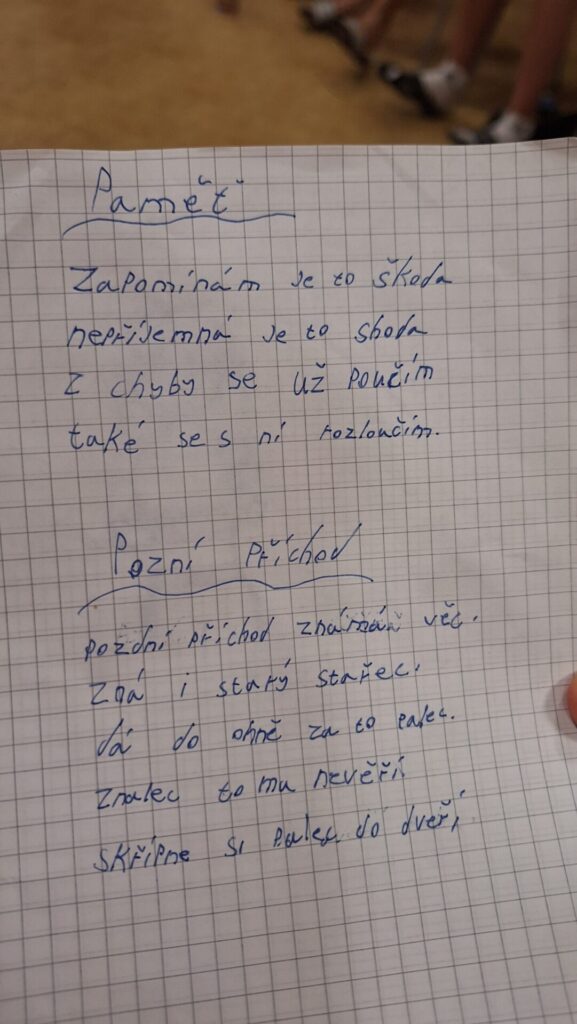 Paměť
Zapomínám je to škoda
nepříjemná je to shoda
z chyby se už poučím
také se s ní rozloučím.
Pozní příchod
pozdní příchod známá věc.
Zná i starý stařec.
dá do ohně za to palec.
Znalec tomu nevěří
skřípne si palec do dveří